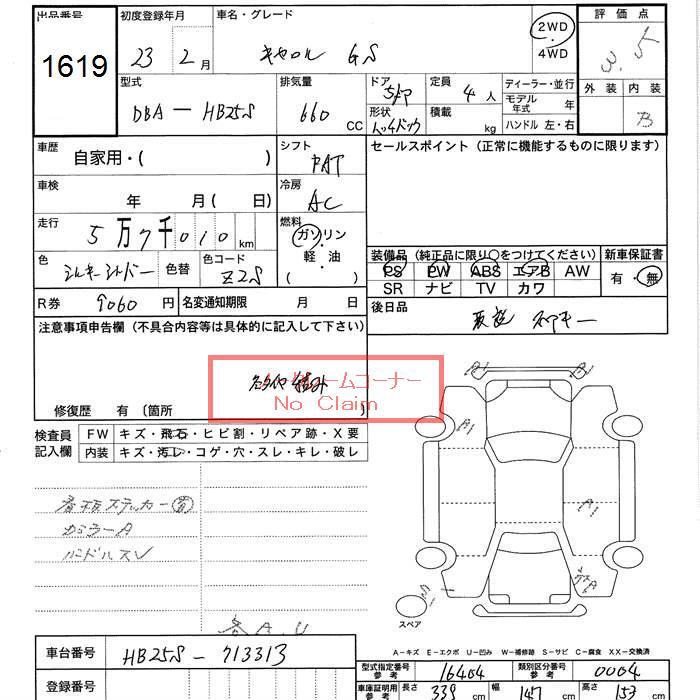 出品番号 初度登録年月 車名・グレード 評価点
1619 23 2月 キャロル GS 2WD 4WD 3.5
外装 内装
B
型式 排気量 ドア 定員 ディーラー・並行
DBA－HB25S 660 CC 5ドア 4人 モデル年式 年
形状 積載 kg ハンドル 左・右
車歴 自家用・( ) シフト FAT セールスポイント（正常に機能するものに限ります）
車検 年 月（ 日） 冷房 AC
走行 5万7千010km 燃料 ガソリン・軽・油（ ）
色 シルキーシャドー 色替 色コード Z2S
装備品（純正品に限り○をつけてください） 新車保証書
PS PW ABS エアB AW 有・無
SR ナビ TV カワ
R券 9060円 名変通知期限 月 日 後日品
取説 スペアキー
注意事項申告欄（不具合内容等は具体的に記入して下さい）
ームコーナー
No Claim
修復歴 有（箇所 ）
検査員記入欄 FW キズ・飛石・ヒビ割・リペア跡・X要
内装 キズ・汚レ・コゲ・穴・スレ・キレ・破レ
A1
A1
ハンドルスレ
スペア
A-キズ E-エクボ U-凹み W-補修跡 S-サビ C-腐食 XX-交換済
車台番号 HB25S-713313
型式指定番号 参考 16464 類別区分番号 参考 0004
登録番号 車庫証明用 参考 長さ 339 幅 147 高さ 153